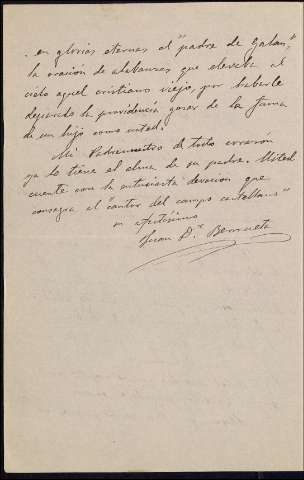 en glorias eternas el "padre de Galan",
la oración de alabanza que elevaba al
cielo aquel cristiano viejo, por haberle
dejarado la providencia gozar de la fama
de un hijo como usted.
Mi Padrenuestro de todo corazón
ya lo tiene el alma de su padre. Usted
cuente con la entusiasta devocion que
consagra al "cantor del campo castellano"
su afectísimo
Juan D.